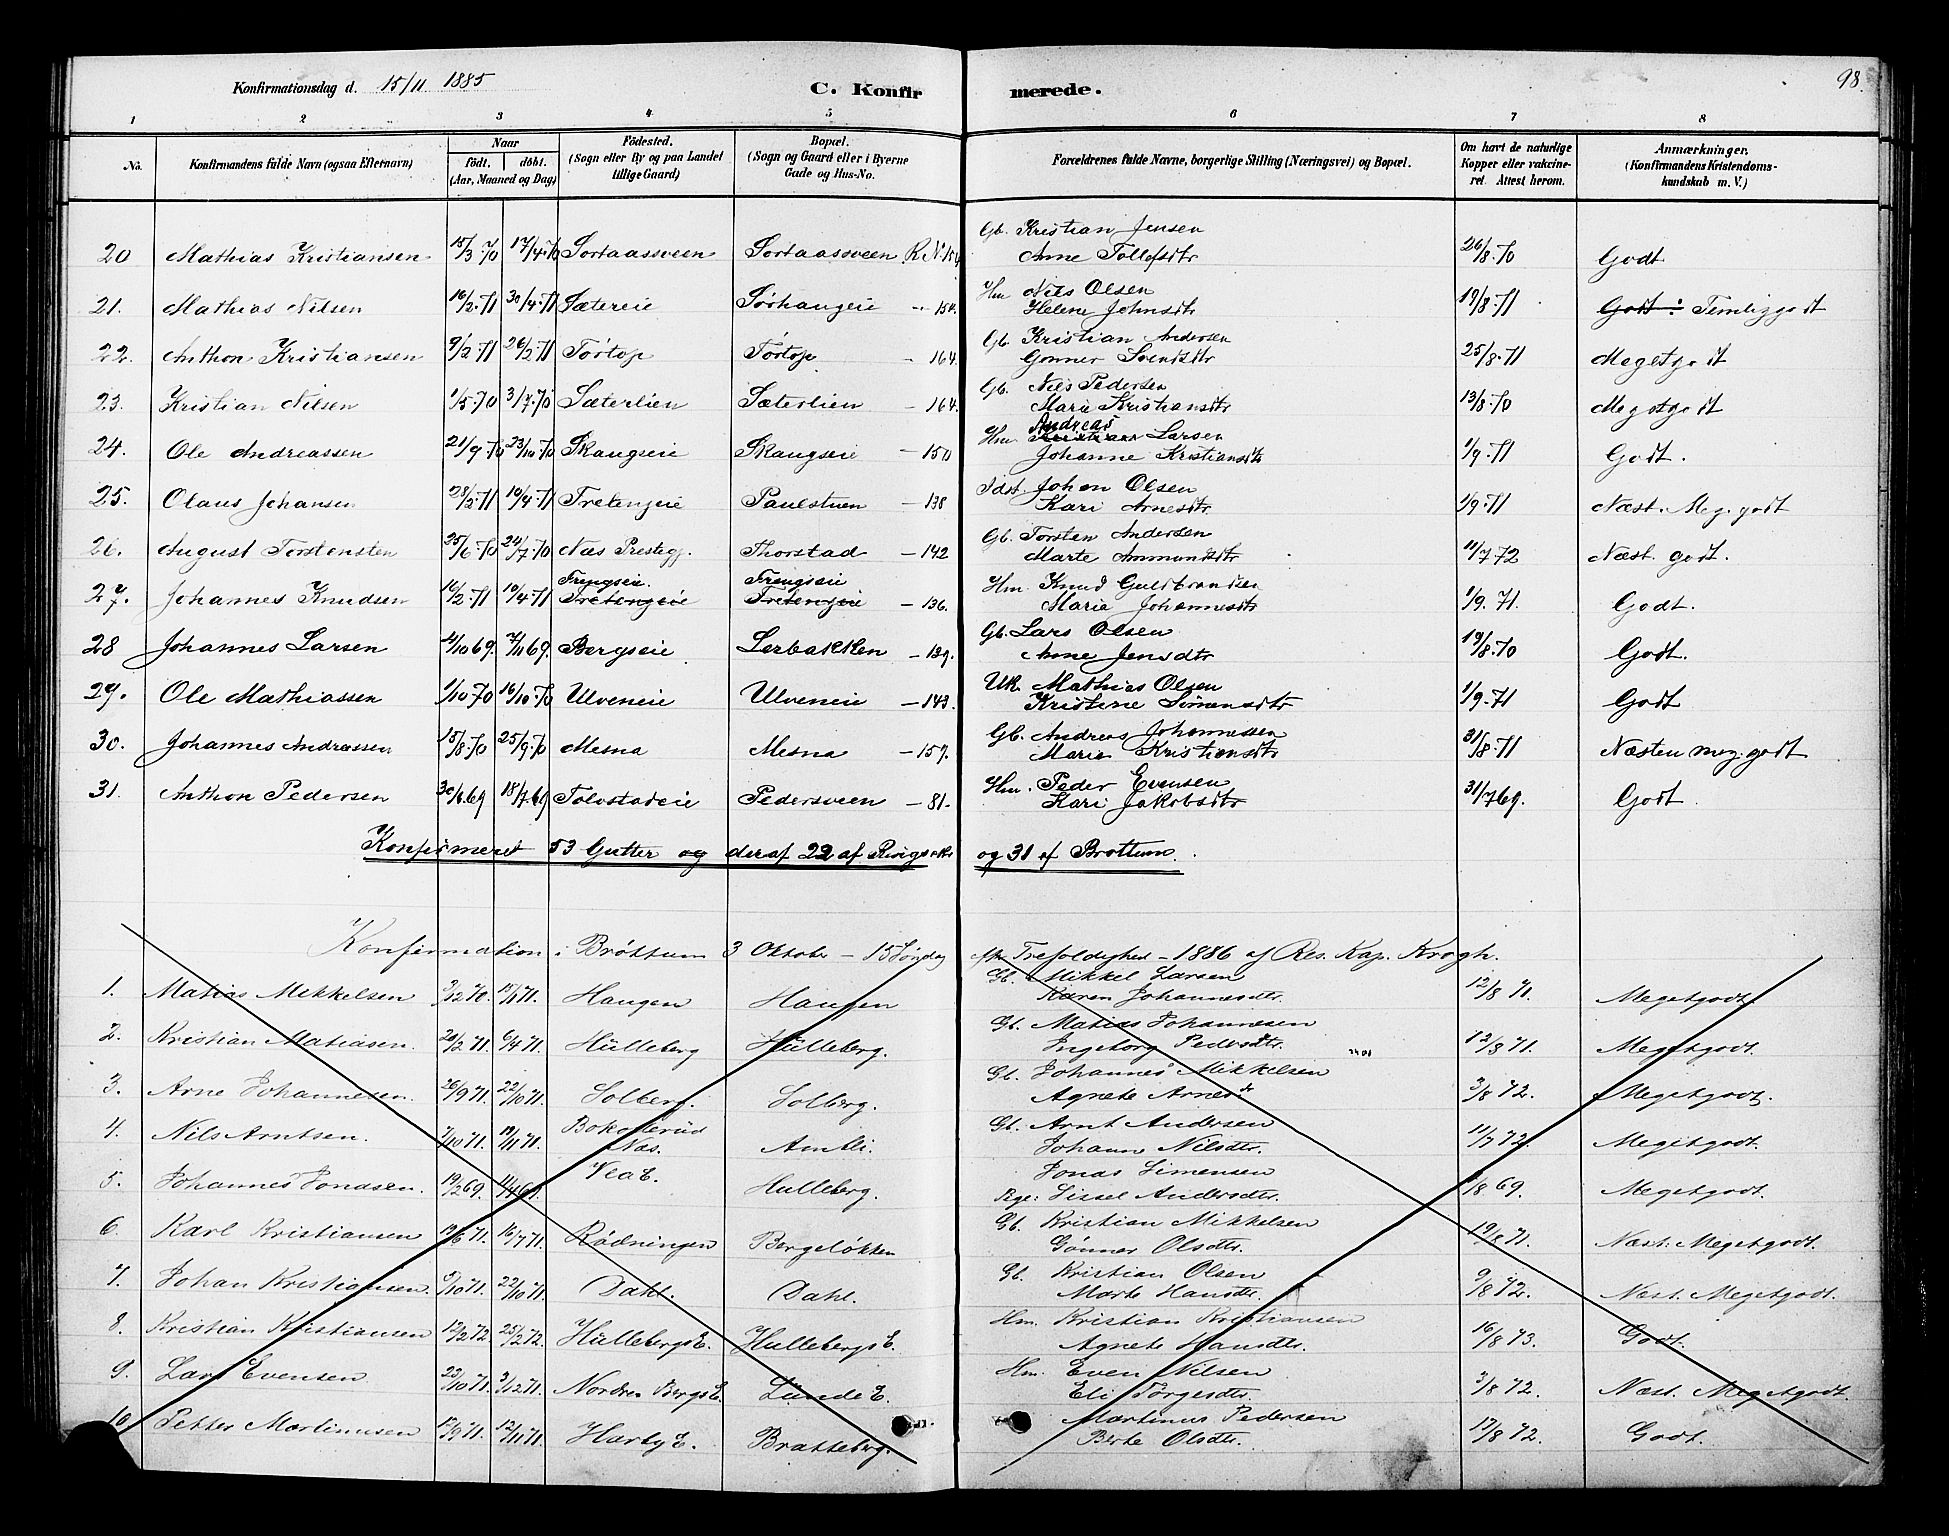 Konfirmationsdag d. 15/11 1885 C. Konfirmerede. 98.
1 2 3 4 5 6 7 8
No. Konfirmandens fulde Navn (ogsaa Efternavn) Naar födt. döbt. (Aar, Maaned og Dag) Födested. (Sogn eller By og paa Landet tillige Gaard) Bopæl. (Sogn og Gaard eller i Byerne Gade og Hus-No. Forældrenes fulde Navne, borgerlige Stilling (Næringsvei) og Bopæl. Om havt de naturlige Kopper eller vakcineret. Attest herom. Anmærkninger. (Konfirmandens Kristendomskundskab m. V.)
20 Mathias Kristiansen 15/3.70 17/4.70 Sortaasveen Sortaasveen R. No 154 Gb. Kristian Jensen Anne Tollefsdtr 26/8.70 Godt
21. Mathias Nilsen 16/2.71 30/4.71 Sætereie Sörhaugeie - 154. Hm Nils Olsen Helene Johnsdtr 19/8.71 Godt: Temlig godt
22. Anthon Kristiansen 9/2.71 26/2.71 Törtop Törtop - 164. Gb. Kristian Andersen Gonner Svendsdtr 25/8.71 Meget godt
23. Kristian Nilsen 1/5.70 3/7.70 Sæterlien Sæterlien - 164. Gb. Nils Pedersen Marie Kristiansdtr 13/8.70 Meget godt
24. Ole Andreassen 21/9.70 23/10.70 Skaugseie Skaugseie - 150 Hm. Andreas Larsen Johanne Kristiansdtr 1/9.71 Godt.
25. Olaus Johansen 28/2.71 10/4.71 Fretengeie Paulstuen - 138 Idst. Johan Olsen Kari Arnesdtr 1/9.71 Næst. Meg. godt
26. August Torstensten 25/6.70 24/7.70 Næs Prestegj. Thorstad - 142 Gb. Torsten Andersen Marte Ammundsdtr 11/7 72 Næst. godt.
27. Johannes Knudsen 16/2.71 10/4.71 Frengseie. Fretengeie Frengseie Fretengeie - 136. Hm. Knud Guldbrandsen Maria Johannesdtr 1/9.71. Godt.
28 Johannes Larsen 4/10 69. 7/11 69. Bergseie Lerbakken - 139. Gb. Lars Olsen Anne Jensdtr 19/8.70 Godt.
29. Ole Mathiassen 1/10.70 16/10.70 Ulveneie Ulveneie - 143. Uk. Mathias Olsen Kristine Simensdtr 1/9.71 Godt
30. Johannes Andreassen 15/8.70 25/9.70 Mesna Mesna - 157. Gb. Andreas Johannessen Marie Kristiansdtr 31/8.71 Næsten meg. godt
31. Anthon Pedersen 30/6.69 18/7.69 Tolvstadeie Pedersveen - 81. Hm. Peder Evensen Kari Jakobsdtr 31/7 69. Godt.
Konfirmeret 53 Gutter og deraf 22 af Ringsaker og 31 af Brøttum.
Konfirmation i Brøttum 3 Oktober - 15 Søndag efter Trefoldighed - 1886 af Res. Kap. Krogh.
1. Matias Mikkelsen 9/12 70. 15/1 71. Haugen Haugen Gb. Mikkel Larsen Karen Johannesdtr. 12/8 71. Megetgodt.
2. Kristian Matiasen. 20/2 71. 6/4 71. Hulleberg Hulleberg. Gb. Matias Johannesen Ingeborg Pedersdtr. 12/8 71. Megetgodt.
3. Arne Johannesen. 26/9 71. 22/10 71. Solberg. Solberg. Gb. Johannes Mikkelsen Agnete Arnesdr 3/8 72. Megetgodt.
4. Nils Arntsen. 7/10 71. 19/11 71. Næs. Amli. Gb. Arnt Andersen Johann Nilsdtr. 11/7 72. Megetgodt.
5. Johannes Jonasen. 19/2 69. 11/4 69. Vea E. Hulleberg. Jonas Simensen Pge: Sissel Andersdtr. /8 69. Megetgodt.
6. Karl Kristiansen 19/6 71. 16/7 71. Rödningen Bergeløkken Gb. Kristian Mikkelsen Gønner Olsdtr. 19/8 71. Næst. Megetgodt.
7. Johan Kristiansen. 5/10 71. 22/10 71. Dahl. Dahl. Gb. Kristian Olsen Marte Hansdtr. 9/8 72. Næst. Megetgodt.
8. Kristian Kristiansen 12/2 72. 25/2 72. Hullebergs E. Hullebergs E. Hm. Kristian Kristiansen Agnete Hansdtr. 16/8 73. Godt.
9. Lars Evensen 23/10 71. 3/12 71. Nordre Bergs E. Lunde E. Hm. Even Nilsen Eli Torgersdtr. 3/8 72. Næst. Megetgodt.
10. Petter Martinusen 17/9 71. 12/11 71. Harby E. Bratteberg. Martinus Pedersen Berte Olsdtr. 17/8 72. Godt.